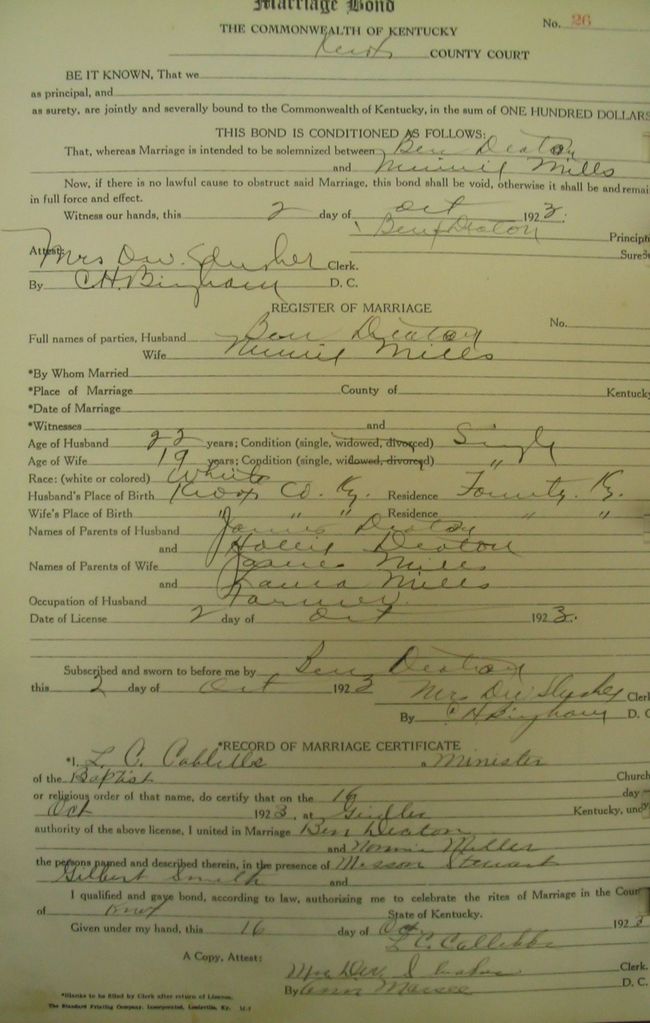 Marriage Bond
No. 26
THE COMMONWEALTH OF KENTUCKY
Knox COUNTY COURT
BE IT KNOWN, That we
as principal, and
as surety, are jointly and severally bound to the Commonwealth of Kentucky, in the sum of ONE HUNDRED DOLLARS
THIS BOND IS CONDITIONED AS FOLLOWS:
That, whereas Marriage is intended to be solemnized between Ben Deaton
and Minnie Mills
Now, if there is no lawful cause to obstruct said Marriage, this bond shall be void, otherwise it shall be and remai
in full force and effect.
Witness our hands, this 2 day of Oct 1923.
Ben Deaton Princip
Sure
Attest:
Mrs Clerk.
By C H Bingham D. C.
REGISTER OF MARRIAGE
No.
Full names of parties, Husband Ben Deaton
Wife Minnie Mills
*By Whom Married
*Place of Marriage County of Kentucky
*Date of Marriage
*Witnesses and
Age of Husband 22 years; Condition (single, widowed, divorced) Single
Age of Wife 19 years; Condition (single, widowed, divorced) "
Race: (white or colored) White
Husband's Place of Birth Knox Co. Ky. Residence Ky.
Wife's Place of Birth " " " Residence " "
Names of Parents of Husband Deaton
and Hollie Deaton
Names of Parents of Wife James Mills
and Laura Mills
Occupation of Husband Farmer
Date of License 2 day of Oct 1923.
Subscribed and sworn to before me by Ben Deaton
this 2 day of Oct 1923 Mrs Clerk
By C H Bingham D. C
*RECORD OF MARRIAGE CERTIFICATE
*I, L. C. a Minister
of the Baptist Church
or religious order of that name, do certify that on the 16 day
Oct 1923, at Kentucky, und
authority of the above license, I united in Marriage Ben Deaton
and Miller
the persons named and described therein, in the presence of Stewart
Gilbert Smith and
I qualified and gave bond, according to law, authorizing me to celebrate the rites of Marriage in the Cour
of Knox State of Kentucky.
Given under my hand, this 16 day of Oct 1923
L. C.
A Copy, Attest:
Mrs Clerk.
By D. C.
*Blanks to be filled by Clerk after return of License.
The Standard Printing Company, Incorporated, Louisville, Ky.